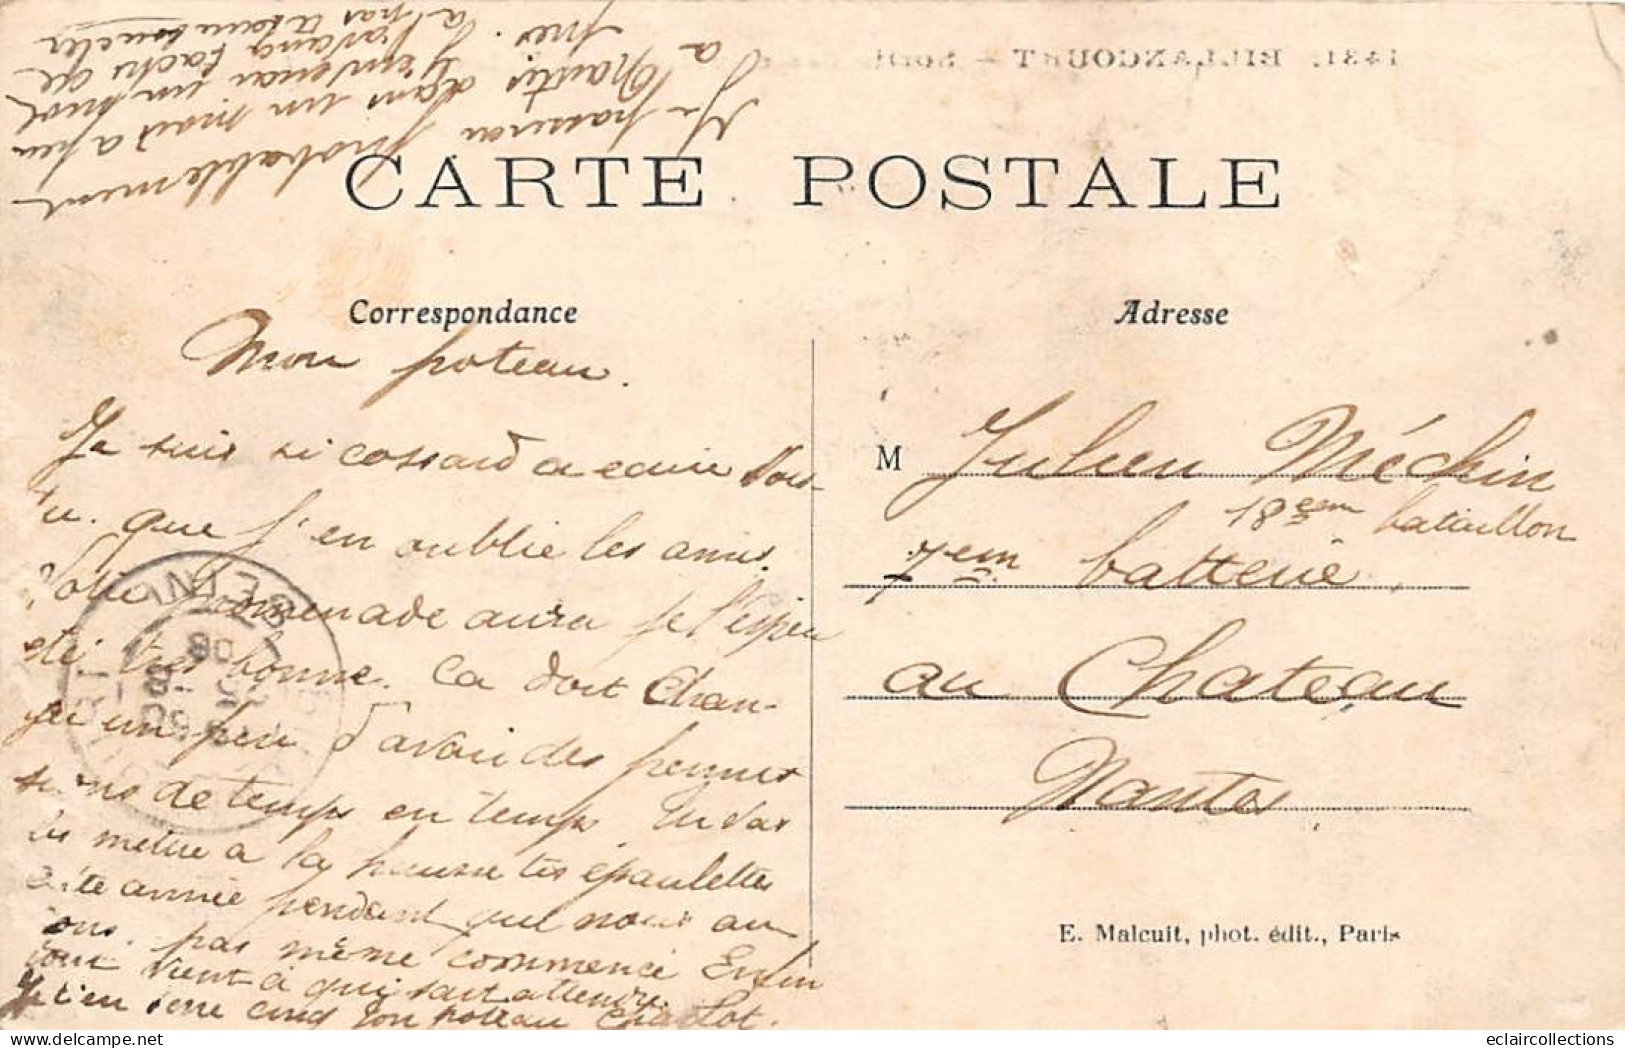 1431. BILLANCOURT
CARTE POSTALE
Correspondance
Adresse
Mon poteau.
Je suis si cossard a ecrire vois-
tu. que j'en oublie les amis.
Votre promenade aura je l'espere
été très bonne. Ca doit Chan-
ger un peu d'avoir des permis
sions de temps en temps Tu vas
les mettre a la hausse tes épaulettes
cette année pendant que nous au
rons pas même commencé Enfin
tout vient à qui sait attendre.
Je t'en serre cinq Ton poteau Charlot.
Je passerai probablement
a Nantes dans un mois a peu
pres.
M Julien Méchin
18em bataillon
7em batterie
au Chateau
Nantes
E. Malcuit, phot. édit., Paris
eclaircollections